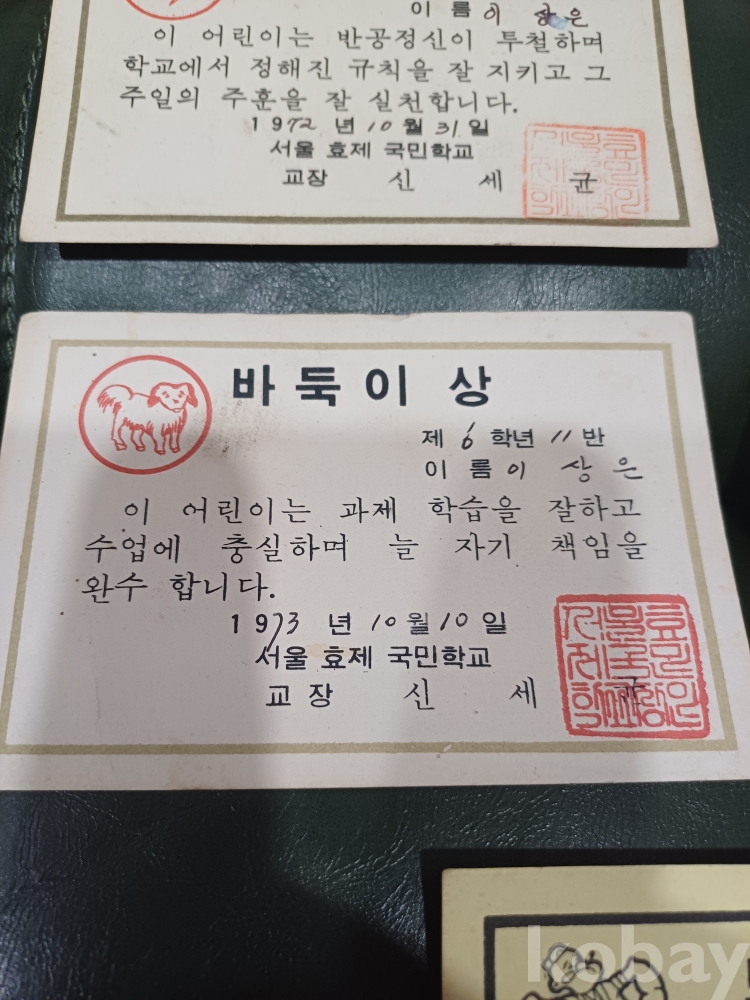 이 름 이 상 은
이 어린이는 반공정신이 투철하며
학교에서 정해진 규칙을 잘 지키고 그
주일의 주훈을 잘 실천합니다.
1972 년 10 월 31 일
서울 효제 국민학교
교장 신 세 균
바둑이 상
제 6 학년 11 반
이 름 이 상 은
이 어린이는 과제 학습을 잘하고
수업에 충실하며 늘 자기 책임을
완수 합니다.
1973 년 10 월 10 일
서울 효제 국민학교
교 장 신 세 균
kobay